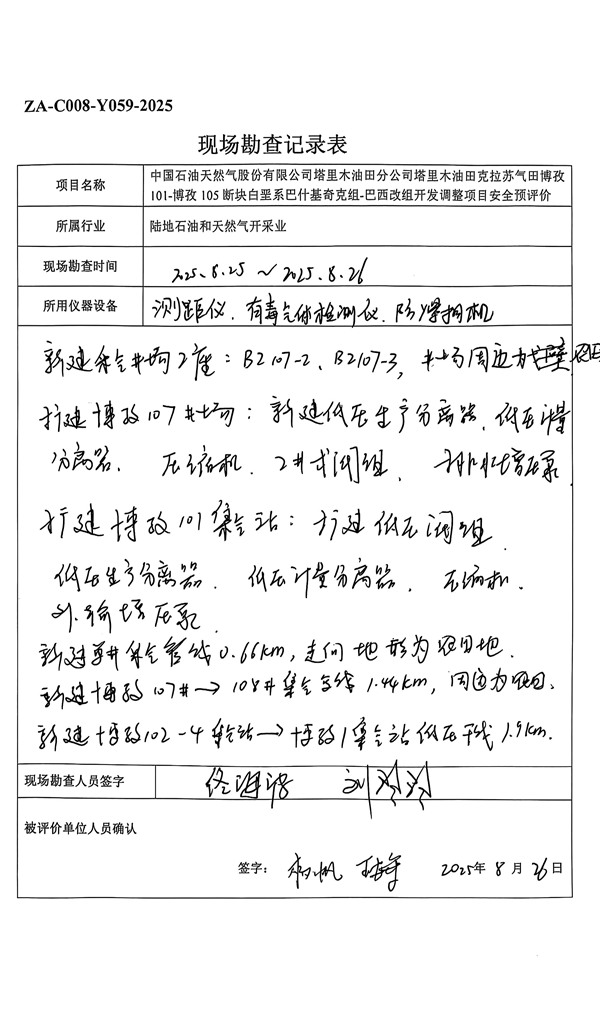 ZA-C008-Y059-2025
现场勘查记录表
项目名称
中国石油天然气股份有限公司塔里木油田分公司塔里木油田克拉苏气田博孜
101-博孜105断块白垩系巴什基奇克组-巴西改组开发调整项目安全预评价
所属行业
陆地石油和天然气开采业
现场勘查时间
2025.8.25 ~ 2025.8.26
所用仪器设备
测距仪、有毒气体检测仪、防爆相机
新建采气井场2座：BZ107-2、BZ107-3，井场周边为
扩建博孜107井场：新建低压生产分离器、低压计量
分离器、压缩机、2井式阀组、增压泵
扩建博孜101集气站：扩建低压阀组
低压生产分离器、低压计量分离器、压缩机、
外输增压泵
新建单井采气管线0.66km，走向地形为农田地.
新建博孜107井→108井集气支线1.44km，周边为农田.
新建博孜102-4集气站→博孜1集气站低压干线1.9km.
现场勘查人员签字
刘玲玲
被评价单位人员确认
签字：
2025年8月26日